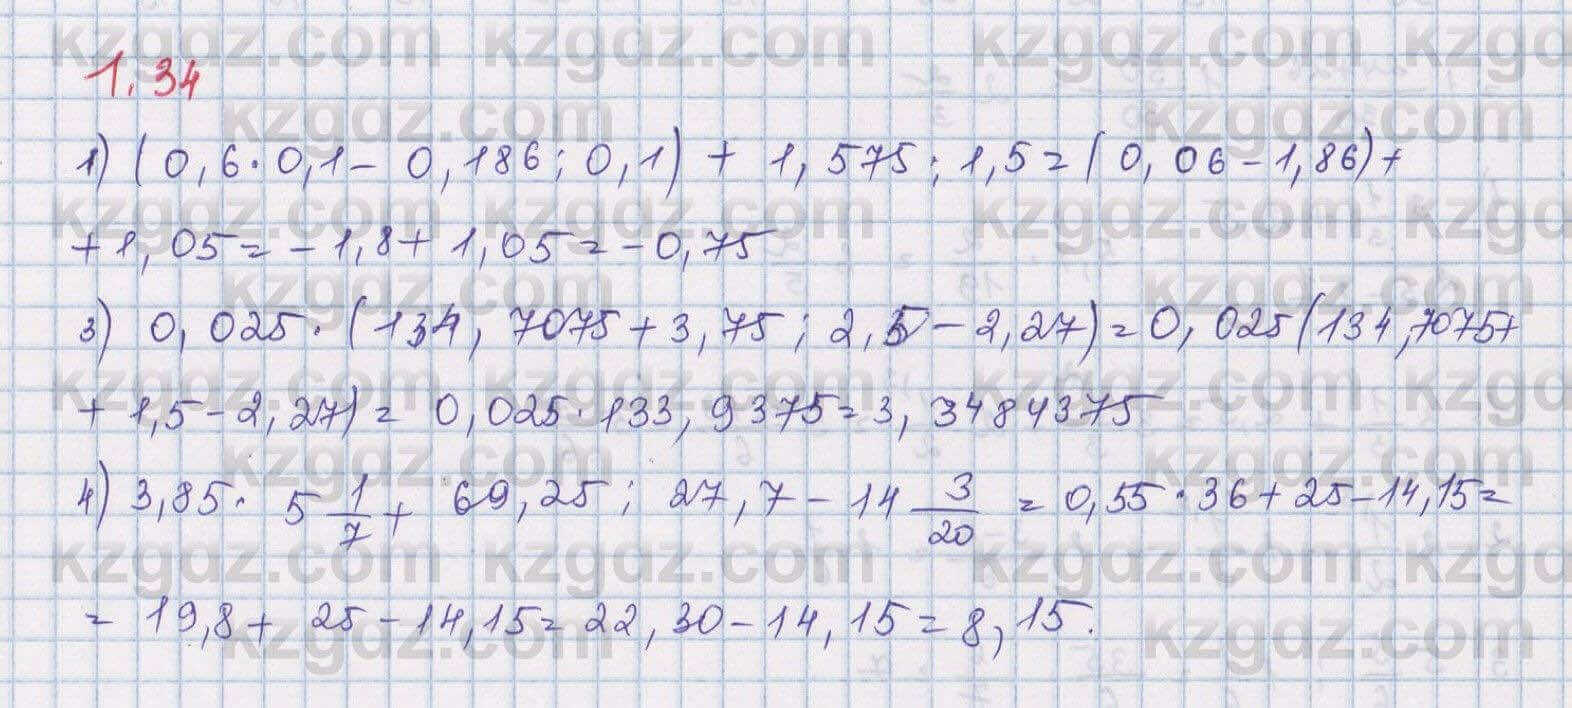 1.34
1) (0,6·0,1-0,186:0,1)+1,575:1,5=(0,06-1,86)+
+1,05=-1,8+1,05=-0,75
3) 0,025·(134,7075+3,75:2,5-2,27)=0,025(134,7075+
+1,5-2,27)=0,025·133,9375=3,3484375
4) 3,85·5 1/7+69,25:27,7-14 3/20=0,55·36+25-14,15=
=19,8+25-14,15=22,30-14,15=8,15.
kzgdz.com